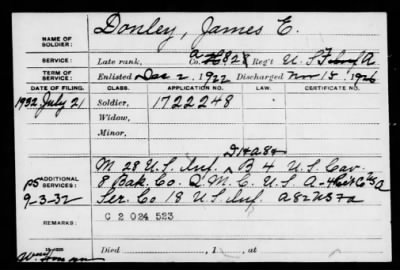 NAME OF SOLDIER: Donley, James E.
SERVICE: Late rank, Co. 828 Reg't U.S. A
TERM OF SERVICE: Enlisted Dec 2, 1922 Discharged Nov 15, 1926
DATE OF FILING. CLASS. APPLICATION NO. CERTIFICATE NO.
1932 July 21 Soldier, 1722248
Widow,
Minor,
D 1 & A 8 &
M 28 U.S. Inf. B 4 U.S. Cav.
ADDITIONAL SERVICES: 8 Bak. Co. Q.M.C. U.S. A
9-3-32 Ser. Co 18 U.S. Inf.
REMARKS: C 2 024 523
Died , 1 , at